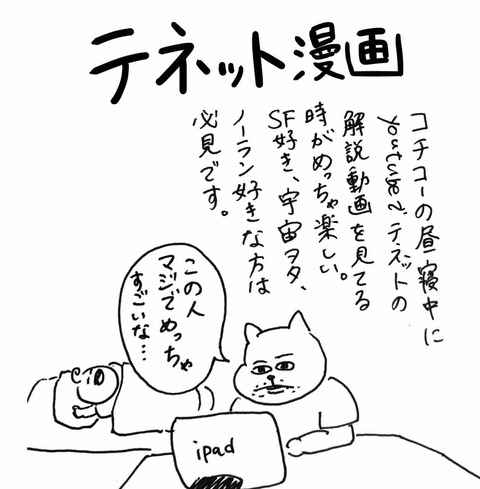 テネット漫画
コチコーの昼寝中に
youtubeでテネットの
解説動画を見てる
時がめっちゃ楽しい。
SF好き、宇宙ヲタ、
ノーラン好きな方は
必見です。
この人
マジでめっちゃ
すごいな…
ipad